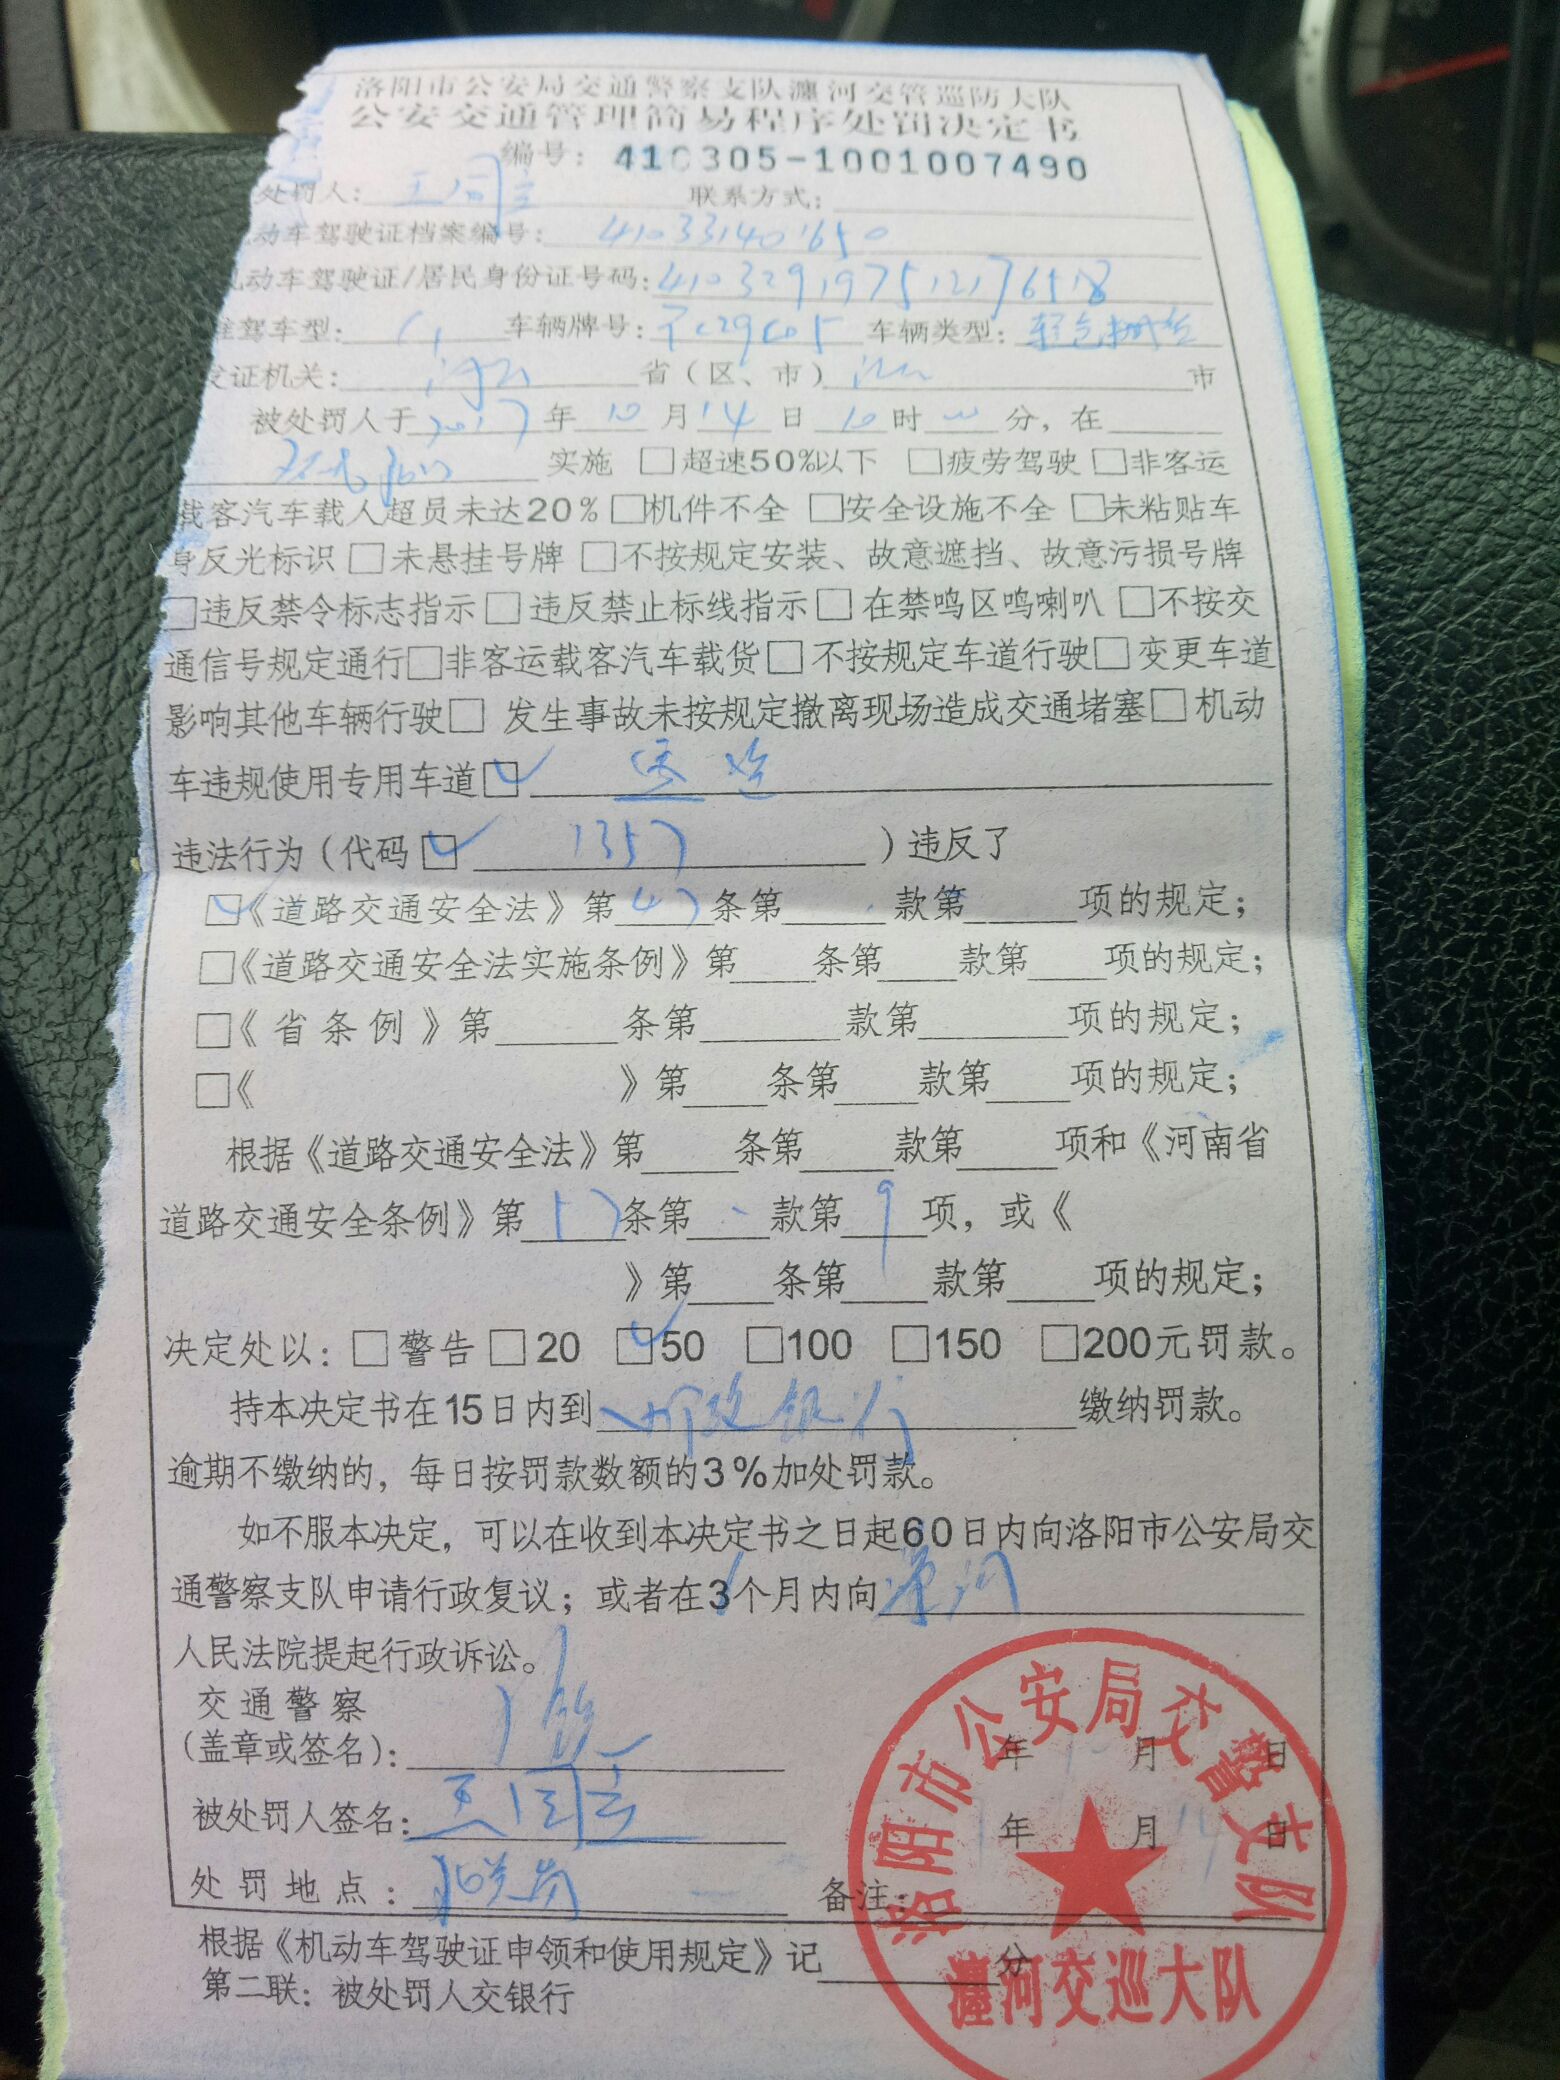 洛阳市公安局交通警察支队瀍河交管巡防大队
公安交通管理简易程序处罚决定书
编号：410305-1001007490
处罚人： 联系方式：
动车驾驶证档案编号：410331401650
机动车驾驶证/居民身份证号码：
准驾车型：C1 车辆牌号： 车辆类型：
发证机关： 省（区、市） 市
被处罚人于2017年10月14日10时 分，在
实施 □超速50%以下 □疲劳驾驶 □非客运
载客汽车载人超员未达20% □机件不全 □安全设施不全 □未粘贴车
身反光标识 □未悬挂号牌 □不按规定安装、故意遮挡、故意污损号牌
□违反禁令标志指示 □违反禁止标线指示 □在禁鸣区鸣喇叭 □不按交
通信号规定通行□非客运载客汽车载货□不按规定车道行驶□变更车道
影响其他车辆行驶□ 发生事故未按规定撤离现场造成交通堵塞□机动
车违规使用专用车道☑
违法行为（代码☑ 1357 ）违反了
☑《道路交通安全法》第47条第 款第 项的规定；
□《道路交通安全法实施条例》第 条第 款第 项的规定；
□《省条例》第 条第 款第 项的规定；
□《 》第 条第 款第 项的规定；
根据《道路交通安全法》第 条第 款第 项和《河南省
道路交通安全条例》第57条第 款第9项，或《
》第 条第 款第 项的规定；
决定处以：□警告 □20 ☑50 □100 □150 □200元罚款。
持本决定书在15日内到邮政银行缴纳罚款。
逾期不缴纳的，每日按罚款数额的3%加处罚款。
如不服本决定，可以在收到本决定书之日起60日内向洛阳市公安局交
通警察支队申请行政复议；或者在3个月内向瀍河
人民法院提起行政诉讼。
交通警察
（盖章或签名）： 年 月 日
被处罚人签名： 年 月 日
处罚地点： 备注：
根据《机动车驾驶证申领和使用规定》记 分
第二联：被处罚人交银行
洛阳市公安局交警支队
瀍河交巡大队